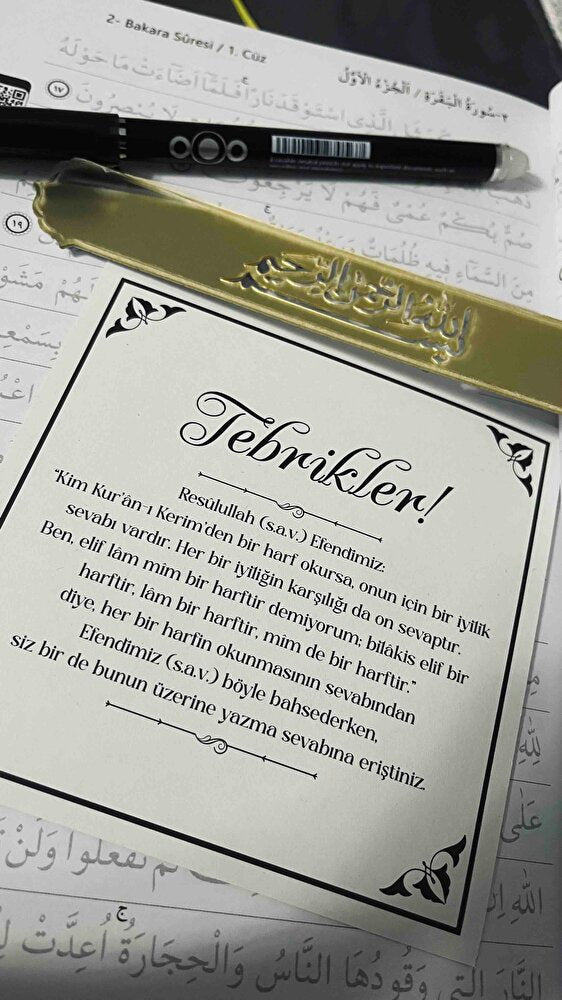 2- Bakara Sûresi / 1. Cüz
٢-سُورَةُ الْبَقَرَةِ / اَلْجُزْءُ الْاَوَّلُ
الَّذِي اسْتَوْقَدَ نَارًا فَلَمَّا اَضَاءَتْ مَا حَوْلَهُ
لَا يُبْصِرُونَ ١٧
صُمٌّ بُكْمٌ عُمْيٌ فَهُمْ لَا يَرْجِعُونَ
مِنَ السَّمَاءِ فِيهِ ظُلُمَاتٌ
١٩
بِسْمِ اللّٰهِ الرَّحْمٰنِ الرَّحِيمِ
لَهُمْ مَشَوْا
Tebrikler!
Resûlullah (s.a.v.) Efendimiz:
“Kim Kur’ân-ı Kerîm’den bir harf okursa, onun için bir iyilik
sevabı vardır. Her bir iyiliğin karşılığı da on sevaptır.
Ben, elif lâm mîm bir harftir demiyorum; bilâkis elif bir
harftir, lâm bir harftir, mîm de bir harftir.”
diye, her bir harfin okunmasının sevabından
Efendimiz (s.a.v.) böyle bahsederken,
siz bir de bunun üzerine yazma sevabına eriştiniz.
تَفْعَلُوا وَلَنْ
النَّارَ الَّتِي وَقُودُهَا النَّاسُ وَالْحِجَارَةُ اُعِدَّتْ